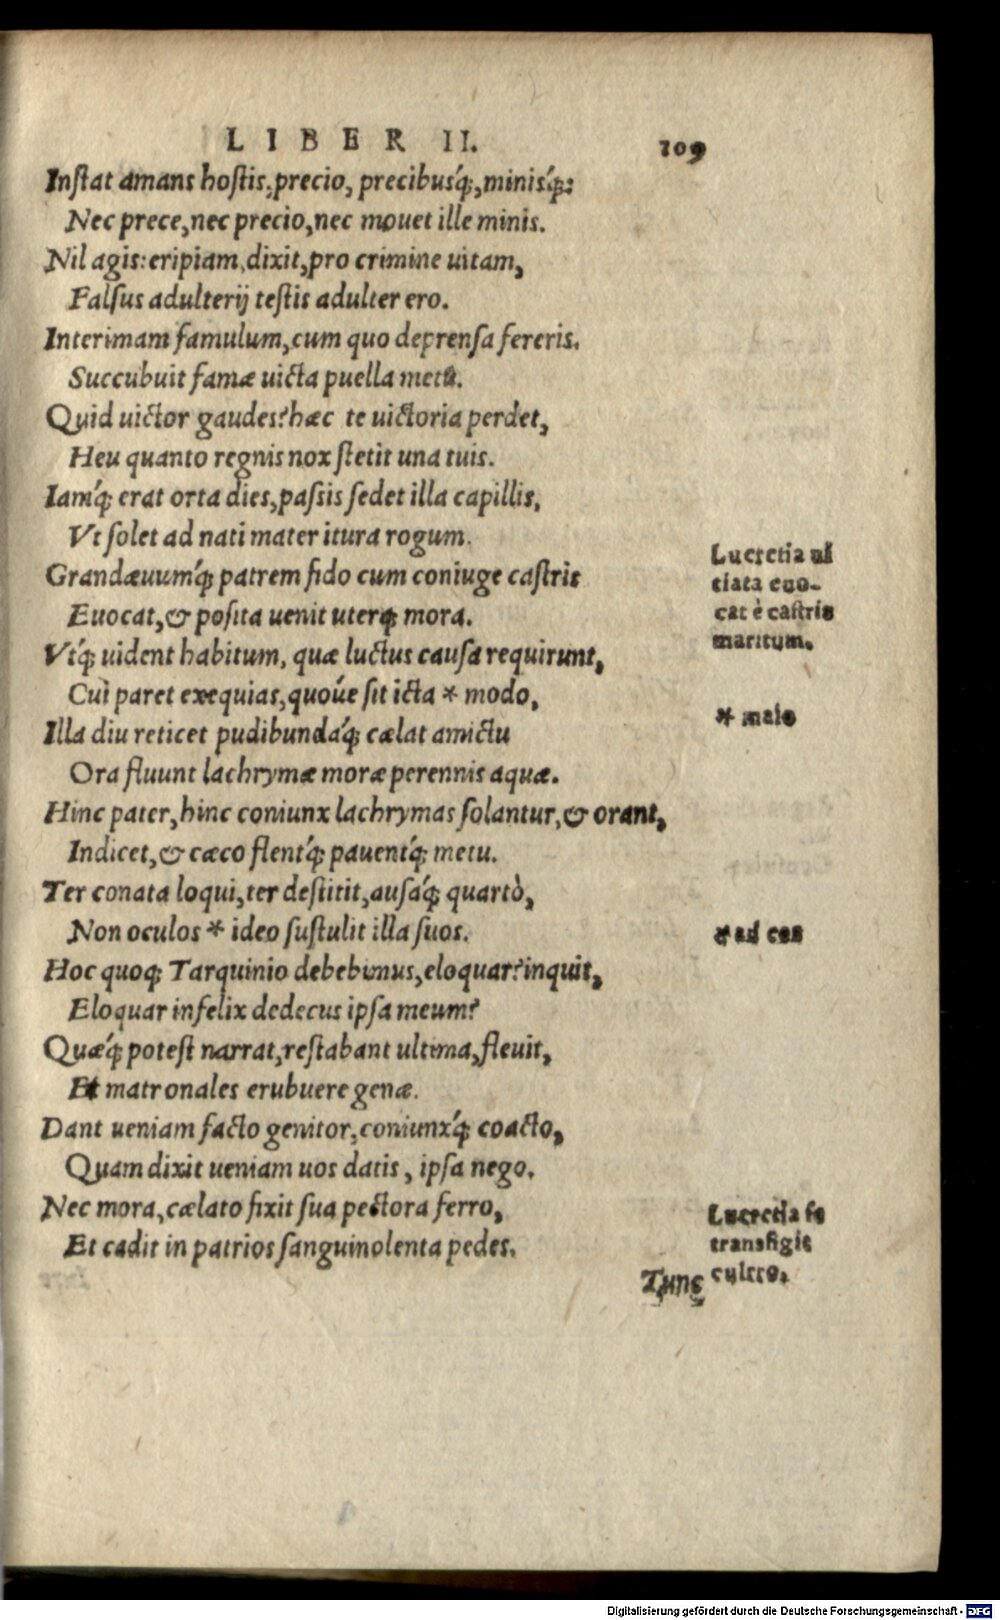 LIBER II. 109
Instat amans hostis, precio, precibusq́;, minisq́;:
Nec prece, nec precio, nec mouet ille minis.
Nil agis: eripiam, dixit, pro crimine uitam,
Falsus adulterij testis adulter ero.
Interimam famulum, cum quo deprensa fereris.
Succubuit famæ uicta puella metu.
Quid uictor gaudes? hæc te uictoria perdet,
Heu quanto regnis nox stetit una tuis.
Iamq́; erat orta dies, passis sedet illa capillis,
Vt solet ad nati mater itura rogum.
Grandæuumq́; patrem fido cum coniuge castris
Euocat, & posita uenit uterq; mora.
Vtq́; uident habitum, quæ luctus causa requirunt,
Cui paret exequias, quoúe sit icta * modo,
Illa diu reticet pudibundaq́; cælat amictu
Ora fluunt lachrymæ moræ perennis aquæ.
Hinc pater, hinc coniunx lachrymas solantur, & orant,
Indicet, & cæco flentq́; pauentq́; metu.
Ter conata loqui, ter destitit, ausaq́; quartò,
Non oculos * ideo sustulit illa suos.
Hoc quoq; Tarquinio debebimus, eloquar? inquit,
Eloquar infelix dedecus ipsa meum?
Quæq́; potest narrat, restabant ultima, fleuit,
Et matronales erubuere genæ.
Dant ueniam facto genitor, coniunxq́; coacto,
Quam dixit ueniam uos datis, ipsa nego.
Nec mora, cælato fixit sua pectora ferro,
Et cadit in patrios sanguinolenta pedes.
Tunc
Lucretia ui
tiata euo-
cat è castris
maritum.
* malo
* ad eos
Lucretia se
transfigit
cultro.
Digitalisierung gefördert durch die Deutsche Forschungsgemeinschaft - DFG